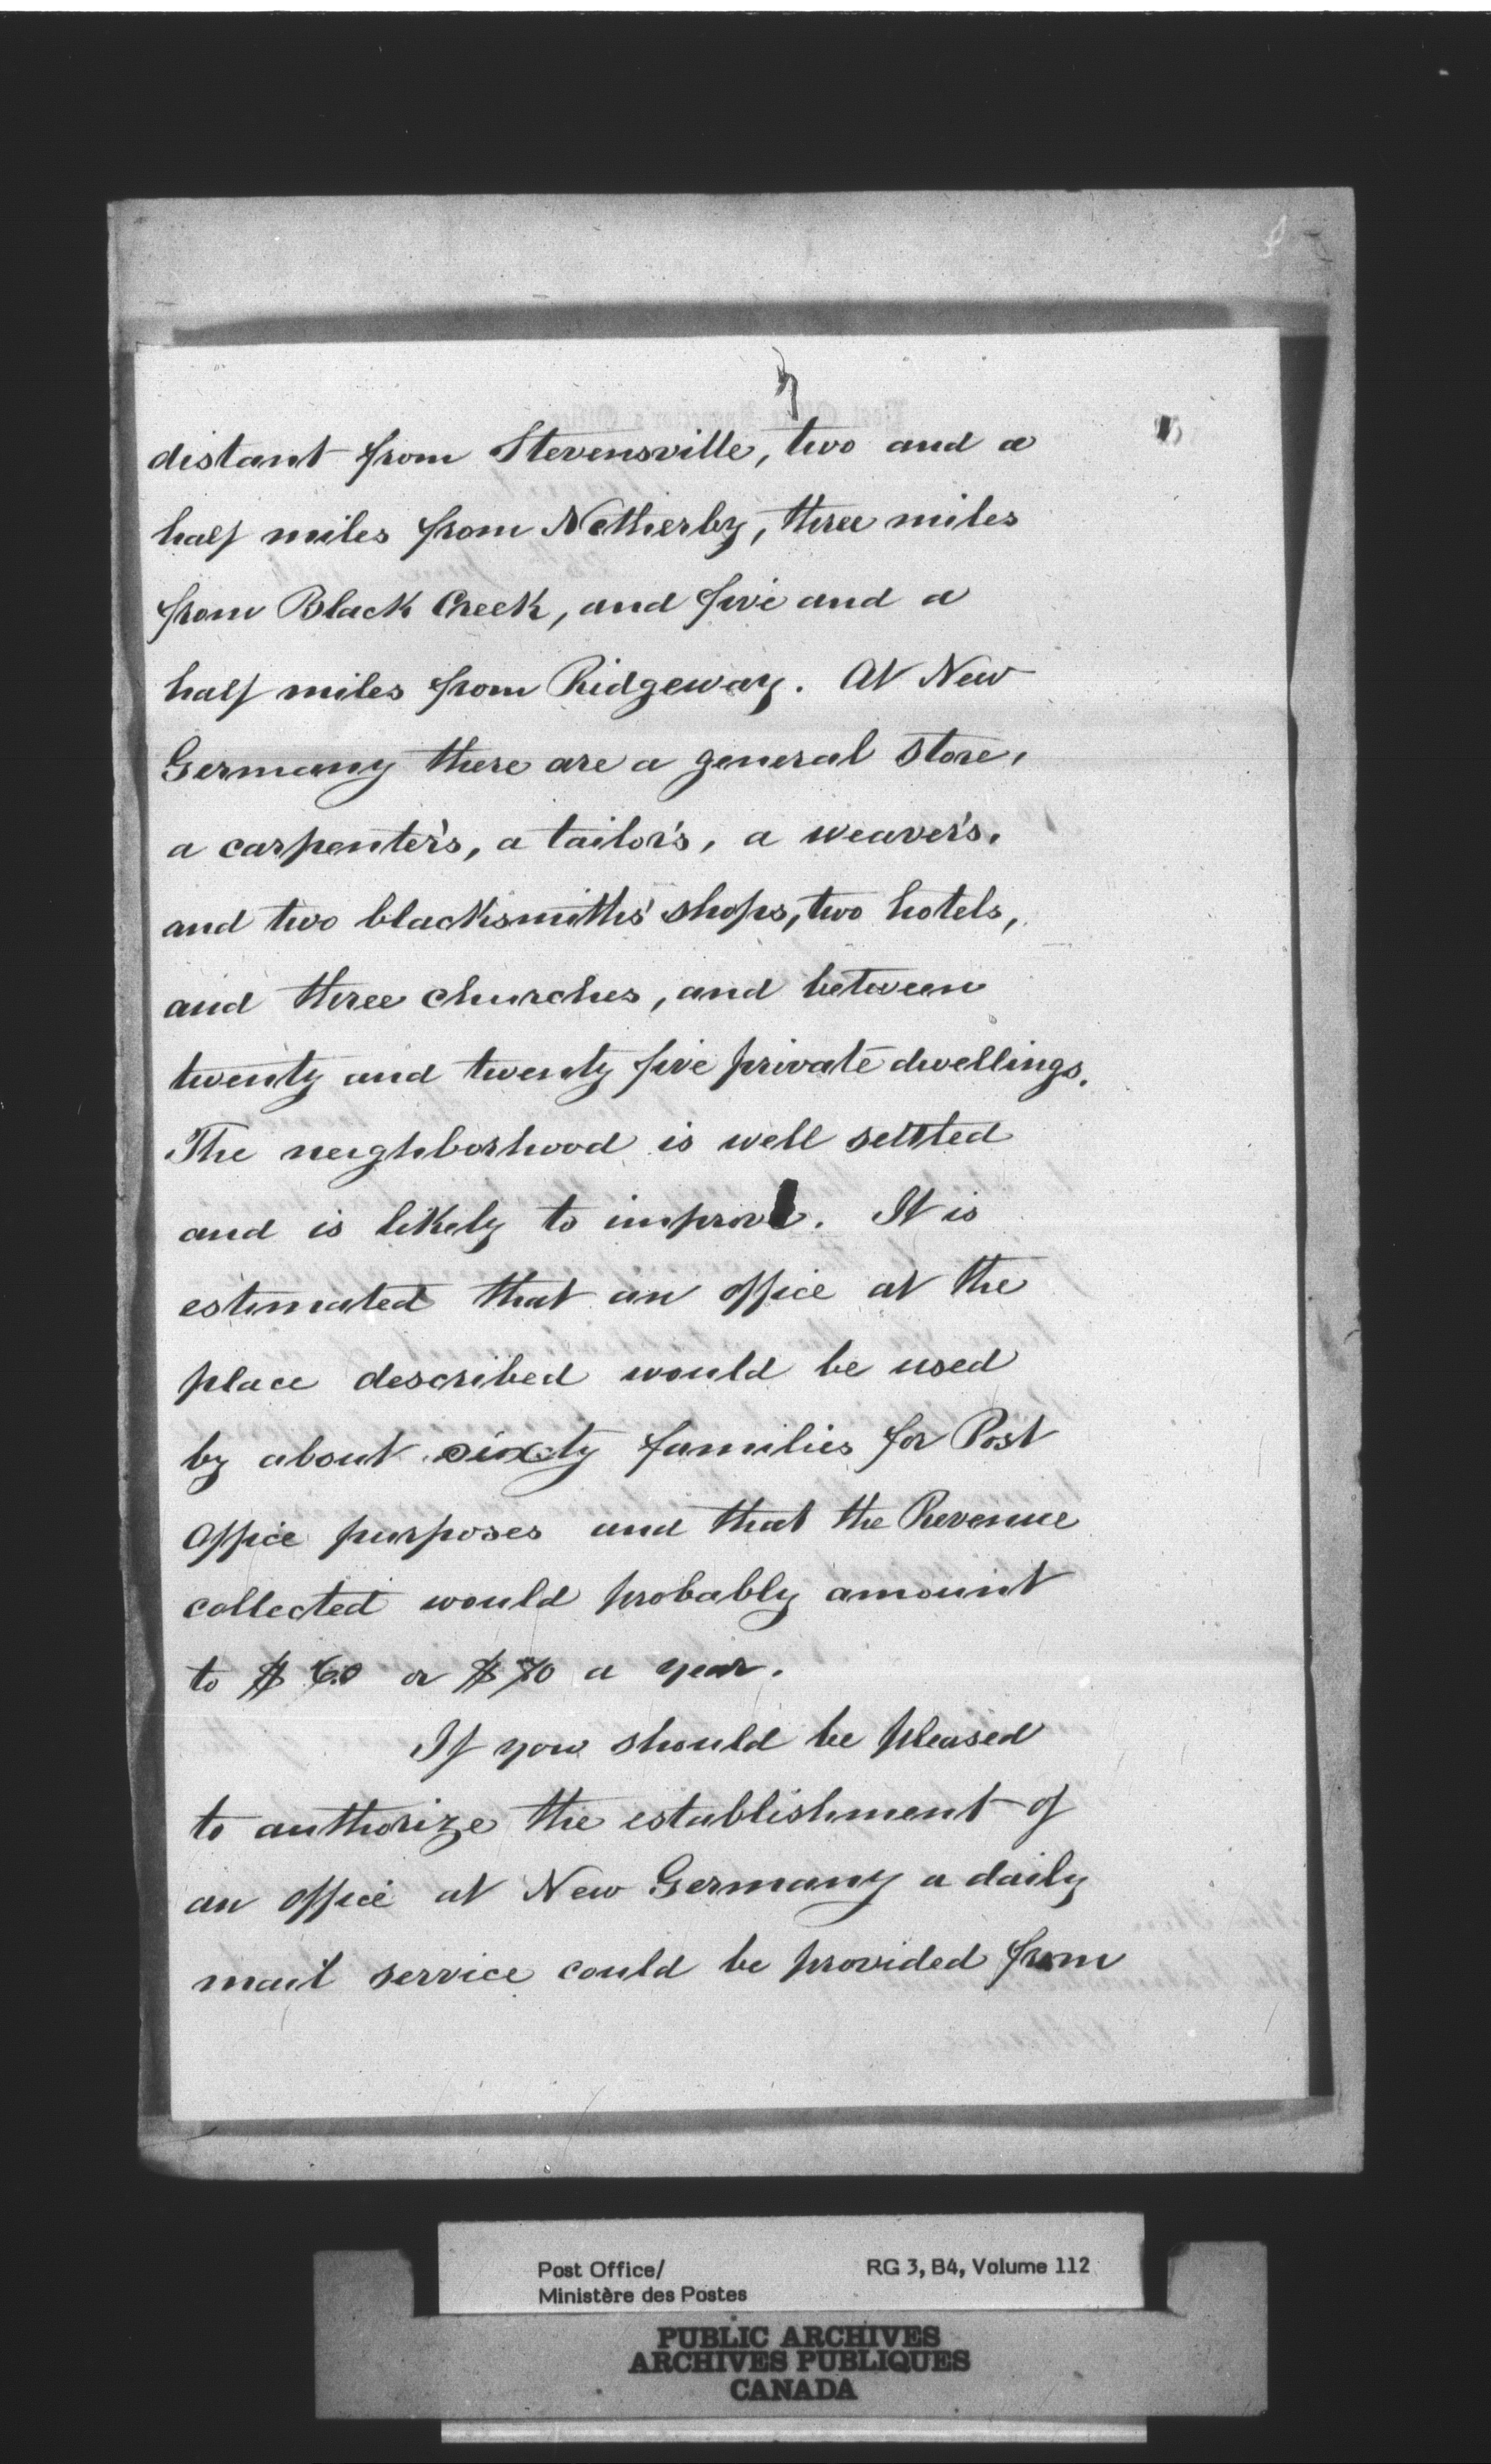 distant from Stevensville, two and a
half miles from Netherby, three miles
from Black Creek, and five and a
half miles from Ridgeway. At New
Germany there are a general store,
a carpenter's, a tailor's, a weaver's,
and two blacksmiths' shops, two hotels,
and three churches, and between
twenty and twenty five private dwellings.
The neighborhood is well settled
and is likely to improve. It is
estimated that an office at the
place described would be used
by about sixty families for Post
Office purposes and that the Revenue
collected would probably amount
to $60 or $70 a year.
If you should be pleased
to authorize the establishment of
an office at New Germany a daily
mail service could be provided from
Post Office/
Ministère des Postes
RG 3, B4, Volume 112
PUBLIC ARCHIVES
ARCHIVES PUBLIQUES
CANADA